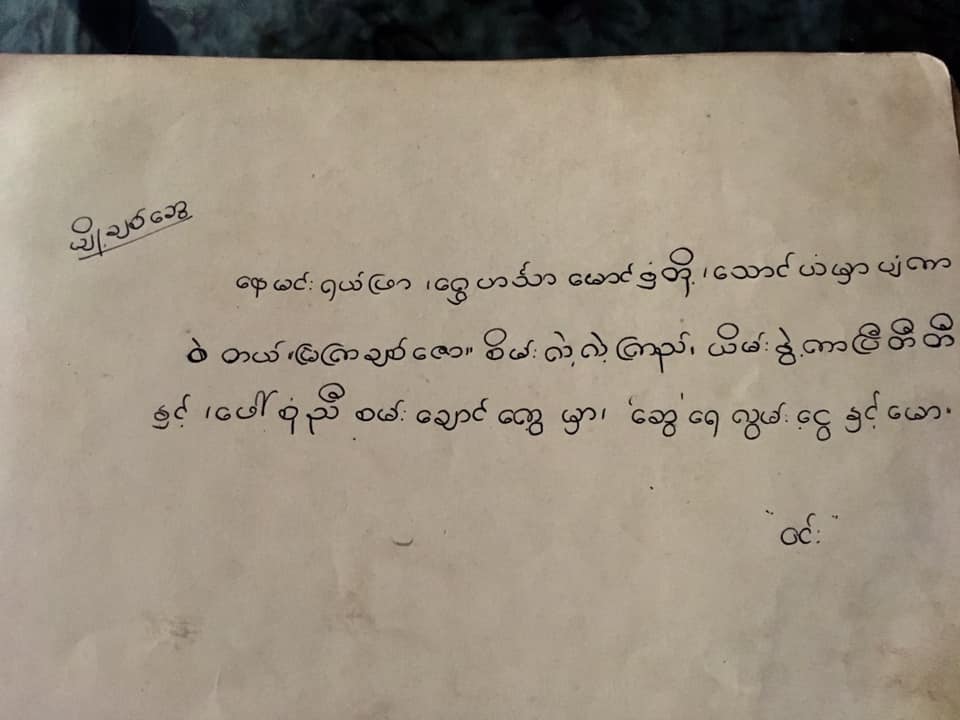 သို့ ချစ်ဆွေ
နေမင်းရယ်ဖြာ ၊ ရွှေဟင်္သာ မောင်နှံတို့ ၊ သောင်ယံမှာ ပျံကာ
ဝဲ တယ် "မြကြာ ချစ်ဇော" စိမ်းလဲ့လဲ့ကြည် ၊ ယိမ်းနွဲ့ကာပြီတီတီ
နှင့် ၊ ပေါ်စုံညီ စမ်းချောင်ကွေ့မှာ ၊ 'ဆွေ' ရေ လွမ်းငွေ့နှင့်မော ။
"ဝင်း"